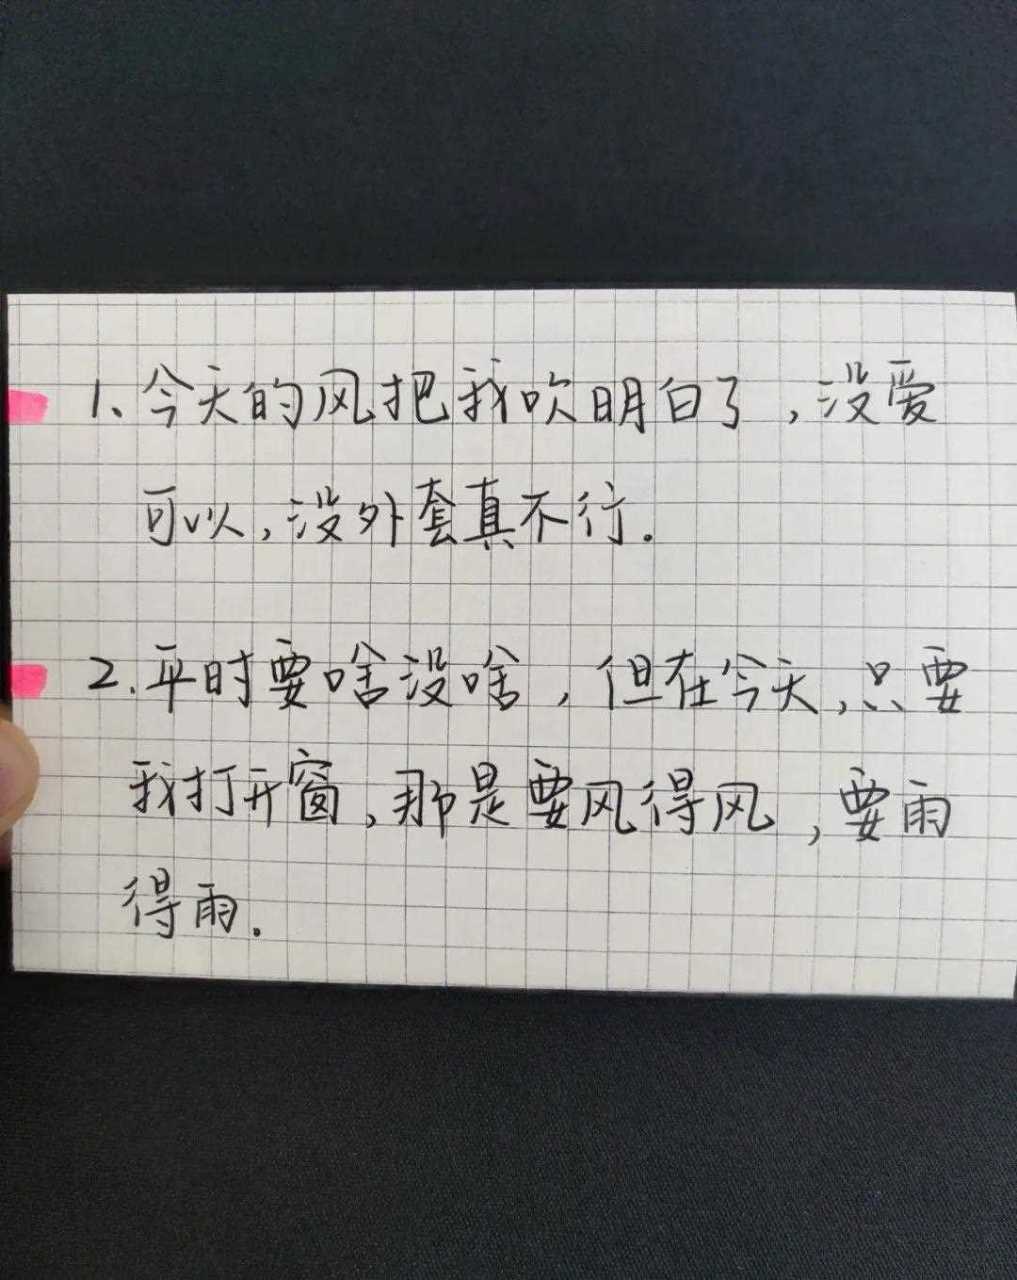 1、今天的风把我吹明白了,没爱
可以,没外套真不行.
2.平时要啥没啥,但在今天,只要
我打开窗,那是要风得风,要雨
得雨.